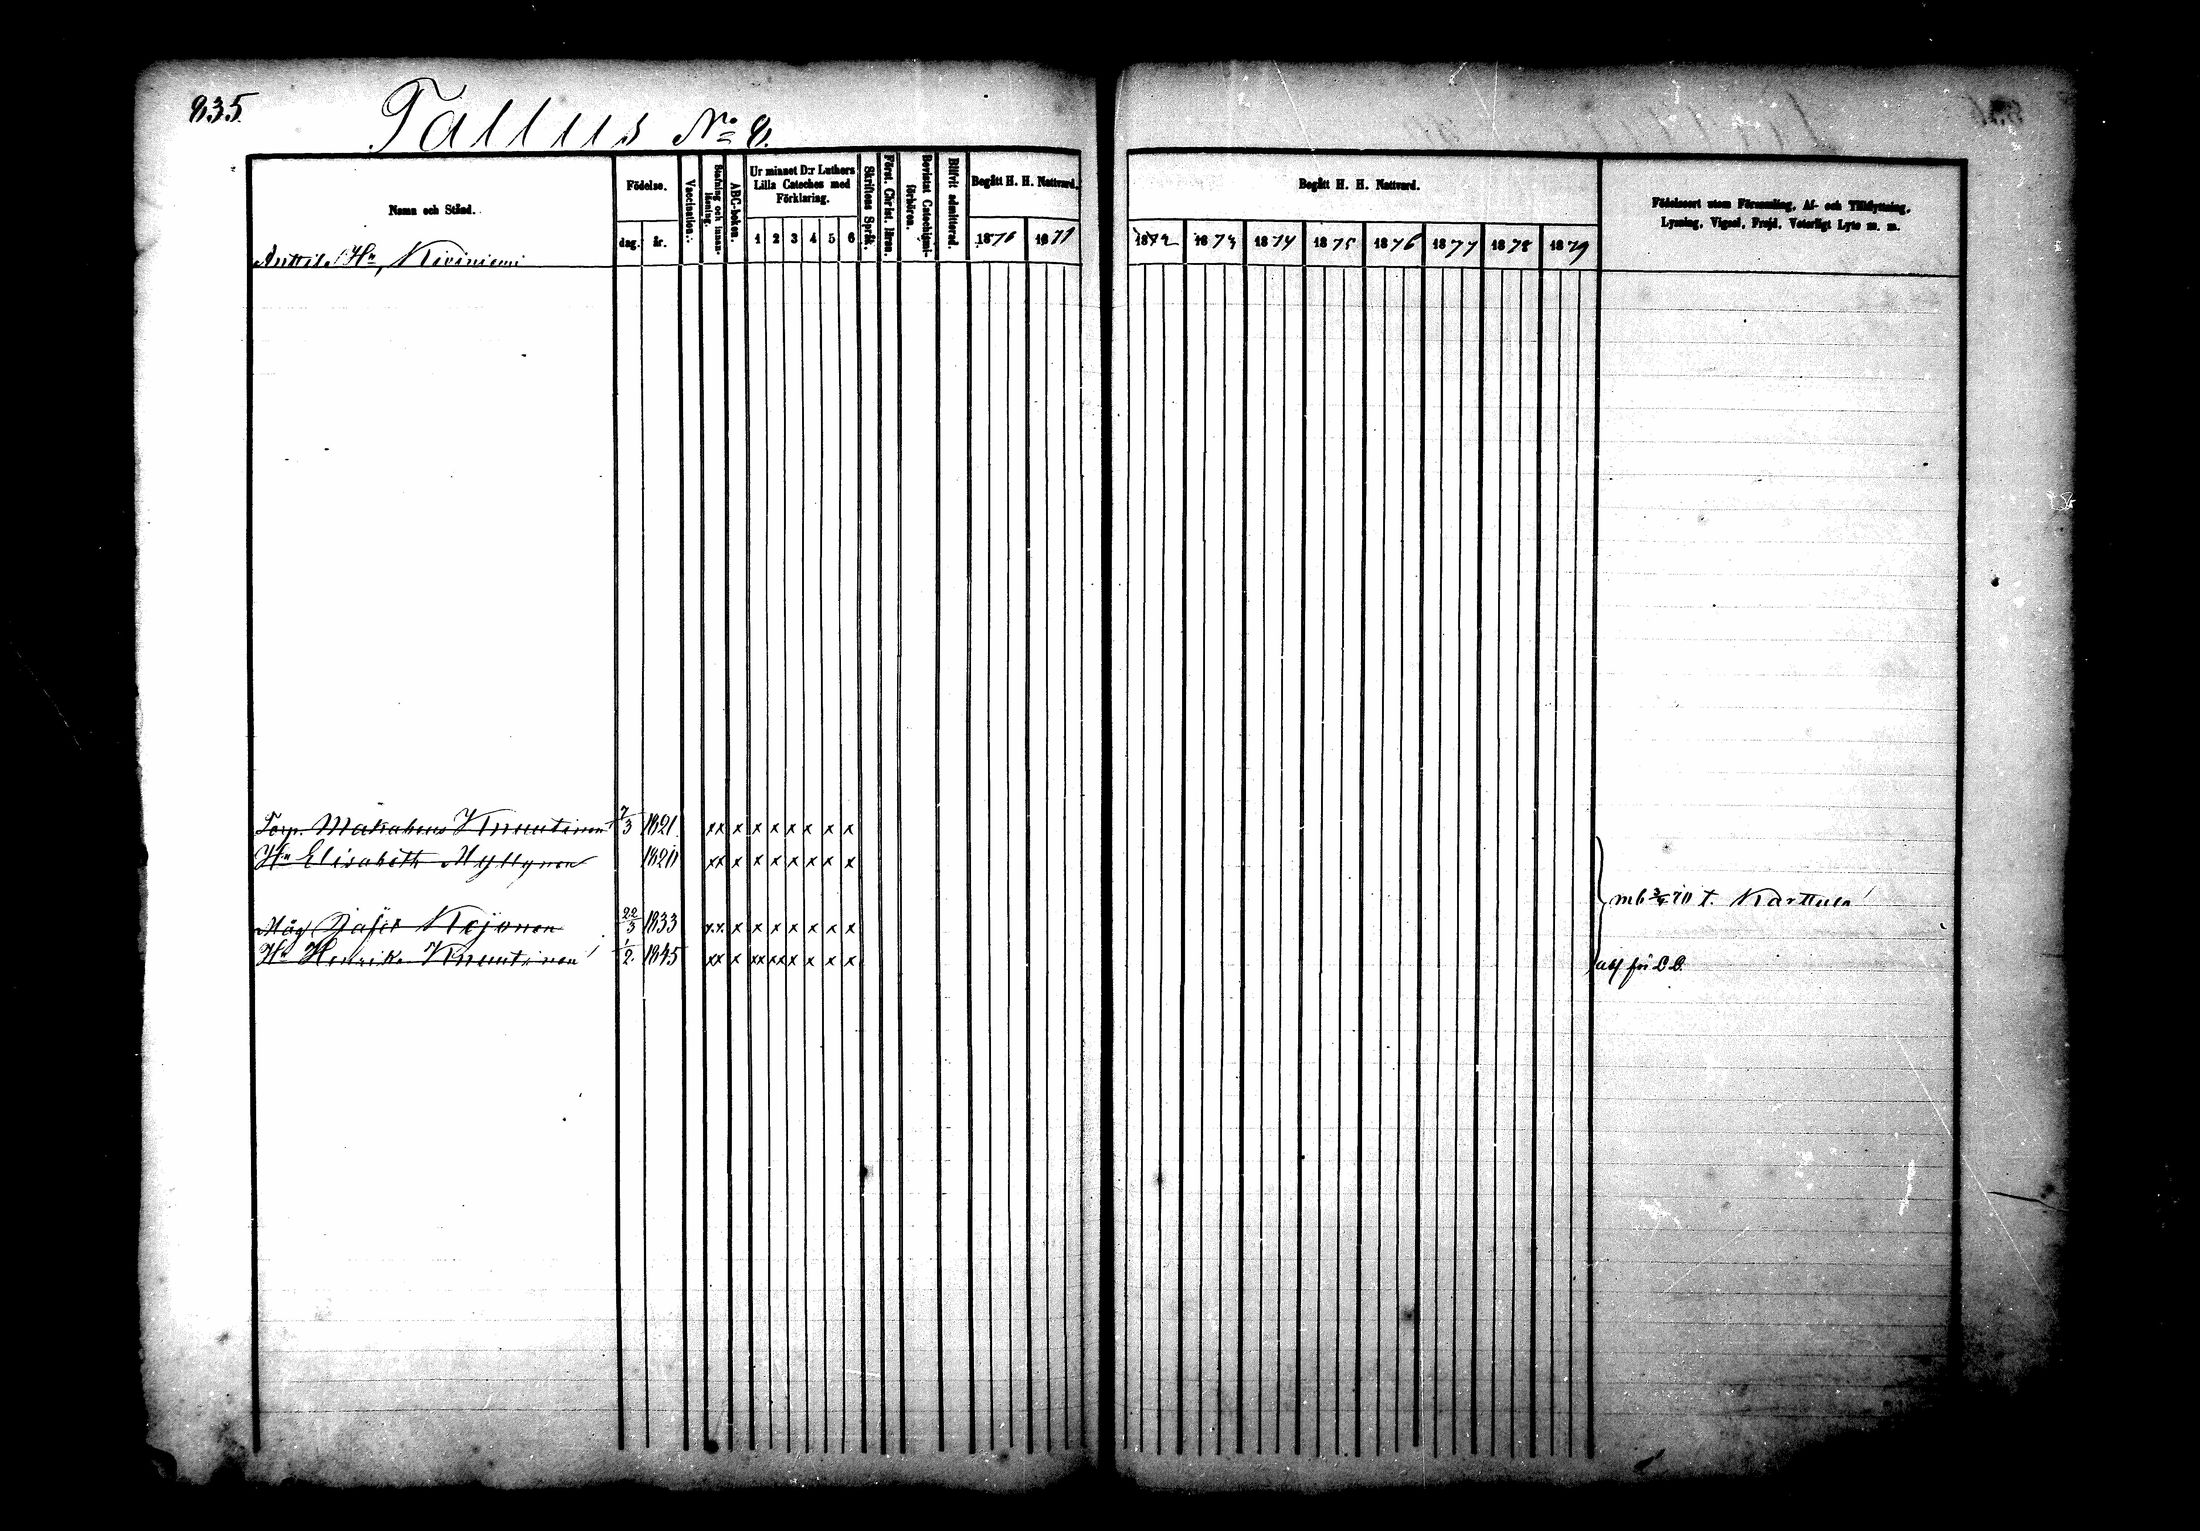 835.
Tallus No 8.
Namn och Stånd.
Födelse.
dag.
år.
Vaccination.
Stafning och innanläsning.
ABC-boken.
Ur minnet D:r Luthers Lilla Cateches med Förklaring.
1 2 3 4 5 6
Skriftens Språk.
Först. Christ. läran.
Bevistat Catechismiförhören.
Blifvit admitterad.
Begått H. H. Nattvard.
1870
1871
Begått H. H. Nattvard.
1872 1873 1874 1875 1876 1877 1878 1879
Födelseort utom Församling, Af- och Tillflyttning,
Lysning, Vigsel, Frejd, Vaterligt Lyte m. m.
Anttila Kiviniemi
Torp. Makabeus Knuutinen 7/3 1821 xx x x x x x x x
Hu Elisabeth Myllynen 1820 xx x x x x x x x
mb 70 t. Karttula
Måg Josef Kejonen 22/3 1833 xx x x x x x x x
Hu Henrika Knuutinen 1/2 1845 xx x xx xx x x x x
abf för